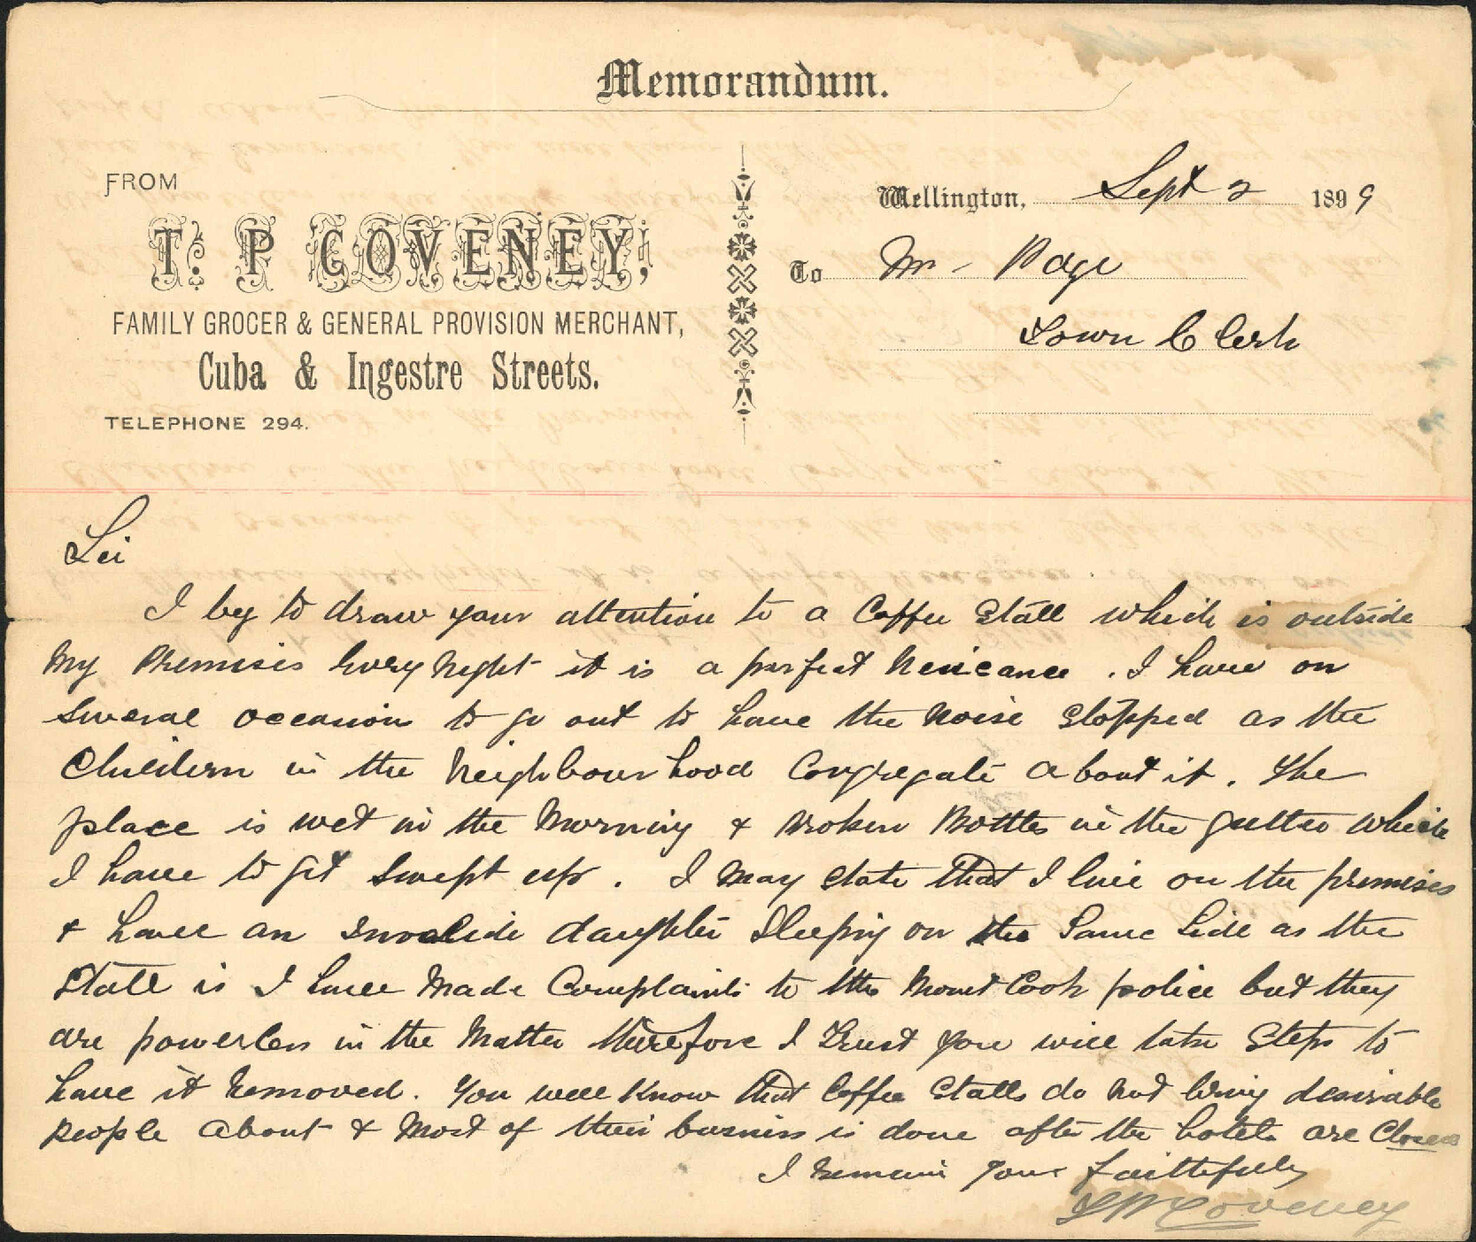 Memorandum.
FROM
T. P. COVENEY,
FAMILY GROCER & GENERAL PROVISION MERCHANT,
Cuba & Ingestre Streets.
TELEPHONE 294.
Wellington, Sept 2 1899
To Mr - Page
Town Clerk
Sir
I beg to draw your attention to a Coffee Stall which is outside
my premises every night it is a perfect Neuicance. I have on
several occasion to go out to have the noise stopped as the
Children in the Neighbourhood Congregate about it. The
place is wet in the morning & broken Bottles in the gutter which
I have to get swept up. I may state that I live on the premises
& have an invalide daughter sleeping on the same side as the
Stall is I have made Complaints to the Mount Cook police but they
are powerless in the matter therefore I trust you will take steps to
have it removed. You well know that Coffee Stalls do not bring desirable
people about & most of their business is done after the hotels are Closed
I remain your faithfully
T P Coveney